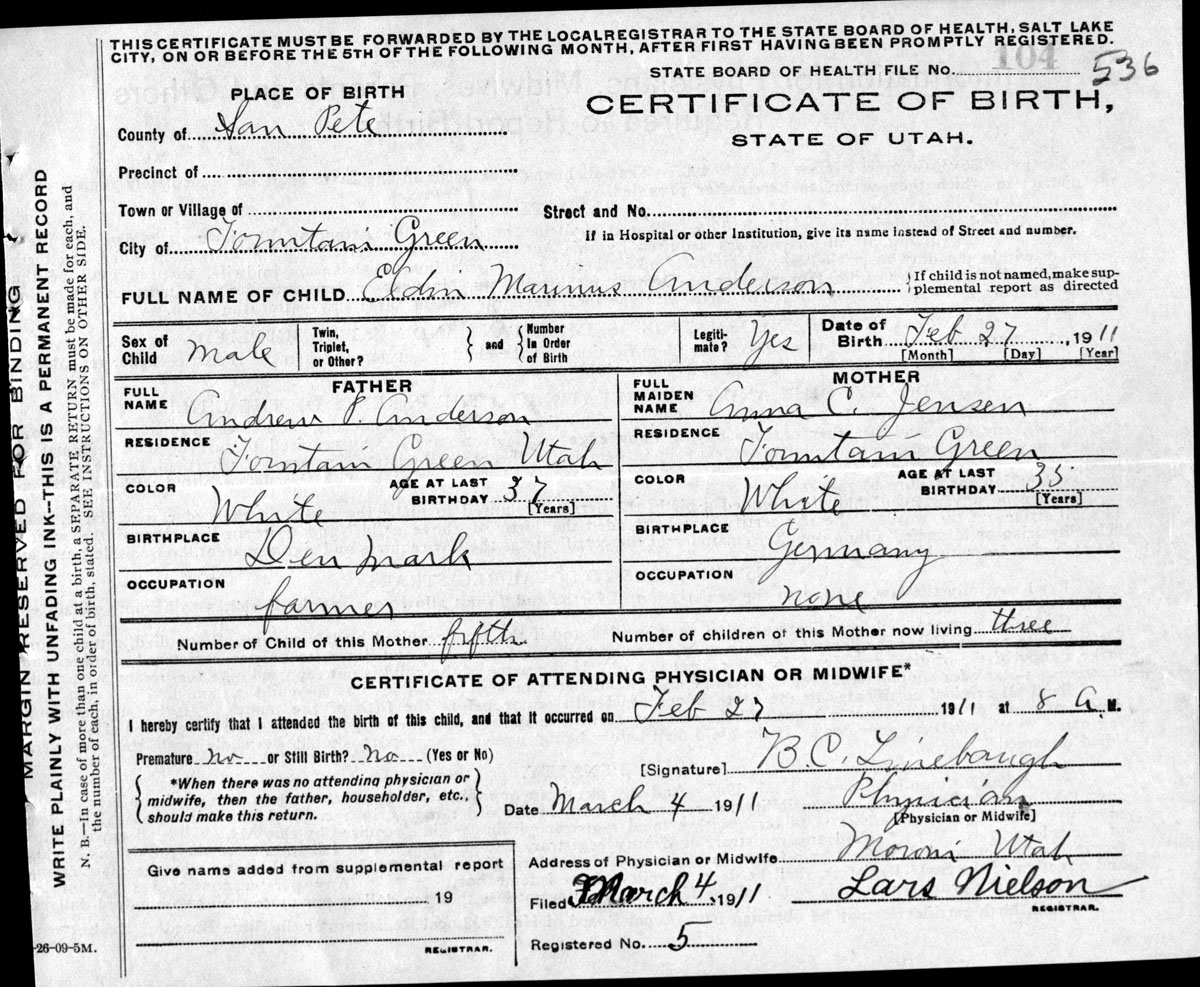 THIS CERTIFICATE MUST BE FORWARDED BY THE LOCALREGISTRAR TO THE STATE BOARD OF HEALTH, SALT LAKE
CITY, ON OR BEFORE THE 5TH OF THE FOLLOWING MONTH, AFTER FIRST HAVING BEEN PROMPTLY REGISTERED.
104
STATE BOARD OF HEALTH FILE NO. 536
PLACE OF BIRTH
CERTIFICATE OF BIRTH,
STATE OF UTAH.
County of San Pete
Precinct of
Town or Village of
Street and No.
City of Fountain Green
If in Hospital or other Institution, give its name instead of Street and number.
FULL NAME OF CHILD Eldin Marinus Anderson
If child is not named, make sup-
plemental report as directed
Sex of Child Male
Twin, Triplet, or Other?
and
Number In Order of Birth
Legiti-mate? Yes
Date of Birth Feb 27, 1911
[Month] [Day] [Year]
FATHER
FULL NAME Andrew P. Anderson
RESIDENCE Fountain Green Utah
COLOR White AGE AT LAST BIRTHDAY 37 [Years]
BIRTHPLACE Denmark
OCCUPATION farmer
MOTHER
FULL MAIDEN NAME Anna C. Jensen
RESIDENCE Fountain Green
COLOR White AGE AT LAST BIRTHDAY 35 [Years]
BIRTHPLACE Germany
OCCUPATION none
Number of Child of this Mother fifth Number of children of this Mother now living three
CERTIFICATE OF ATTENDING PHYSICIAN OR MIDWIFE*
I hereby certify that I attended the birth of this child, and that it occurred on Feb 27 1911 at 8 A. M.
Premature No or Still Birth? No (Yes or No)
[Signature] B. C. Linebaugh
*When there was no attending physician or
midwife, then the father, householder, etc.,
should make this return.
Date March 4 1911
Physician
[Physician or Midwife]
Address of Physician or Midwife Moroni Utah
Give name added from supplemental report
19
REGISTRAR.
Filed March 4, 1911 Lars Nielson
REGISTRAR.
Registered No. 5
-26-09-5M.
MARGIN RESERVED FOR BINDING
WRITE PLAINLY WITH UNFADING INK--THIS IS A PERMANENT RECORD
N. B.—In case of more than one child at a birth, a SEPARATE RETURN must be made for each, and
the number of each, in order of birth, stated. SEE INSTRUCTIONS ON OTHER SIDE.